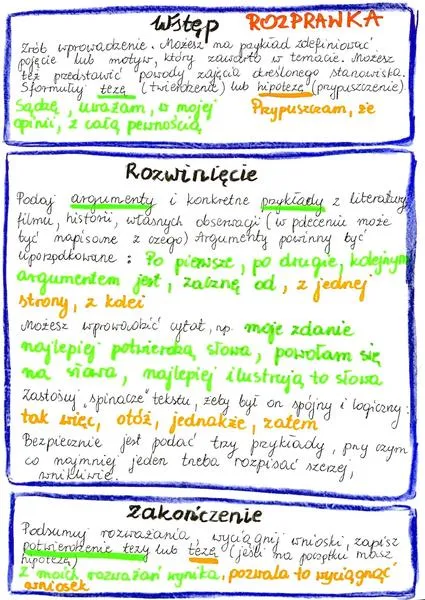 Wstęp ROZPRAWKA
Zrób wprowadzenie. Możesz na przykład zdefiniować
pojęcie lub motyw, który zawarto w temacie. Możesz
też przedstawić powody zajęcia określonego stanowiska.
Sformułuj tezę (twierdzenie) lub hipotezę (przypuszczenie).
Sądzę, uważam, w mojej Przypuszczam, że
opinii, z całą pewnością
Rozwinięcie
Podaj argumenty i konkretne przykłady z literatury,
filmu, historii, własnych obserwacji (w poleceniu może
być napisane z czego) Argumenty powinny być
uporządkowane : Po pierwsze, po drugie, kolejnym
argumentem jest, zacznę od, z jednej
strony, z kolei
Możesz wprowadzić cytat, np. moje zdanie
najlepiej potwierdzą słowa, powołam się
na słowa, najlepiej ilustrują to słowa
Zastosuj „spinacze" tekstu, żeby był on spójny i logiczny:
tak więc, otóż, jednakże, zatem
Bezpiecznie jest podać trzy przykłady, przy czym
co najmniej jeden trzeba rozpisać szerzej,
wnikliwie.
Zakończenie
Podsumuj rozważania, wyciągnij wnioski, zapisz
potwierdzenie tezy lub tezę (jeśli na początku masz
hipotezę)
Z moich rozważań wynika, pozwala to wyciągnąć
wniosek